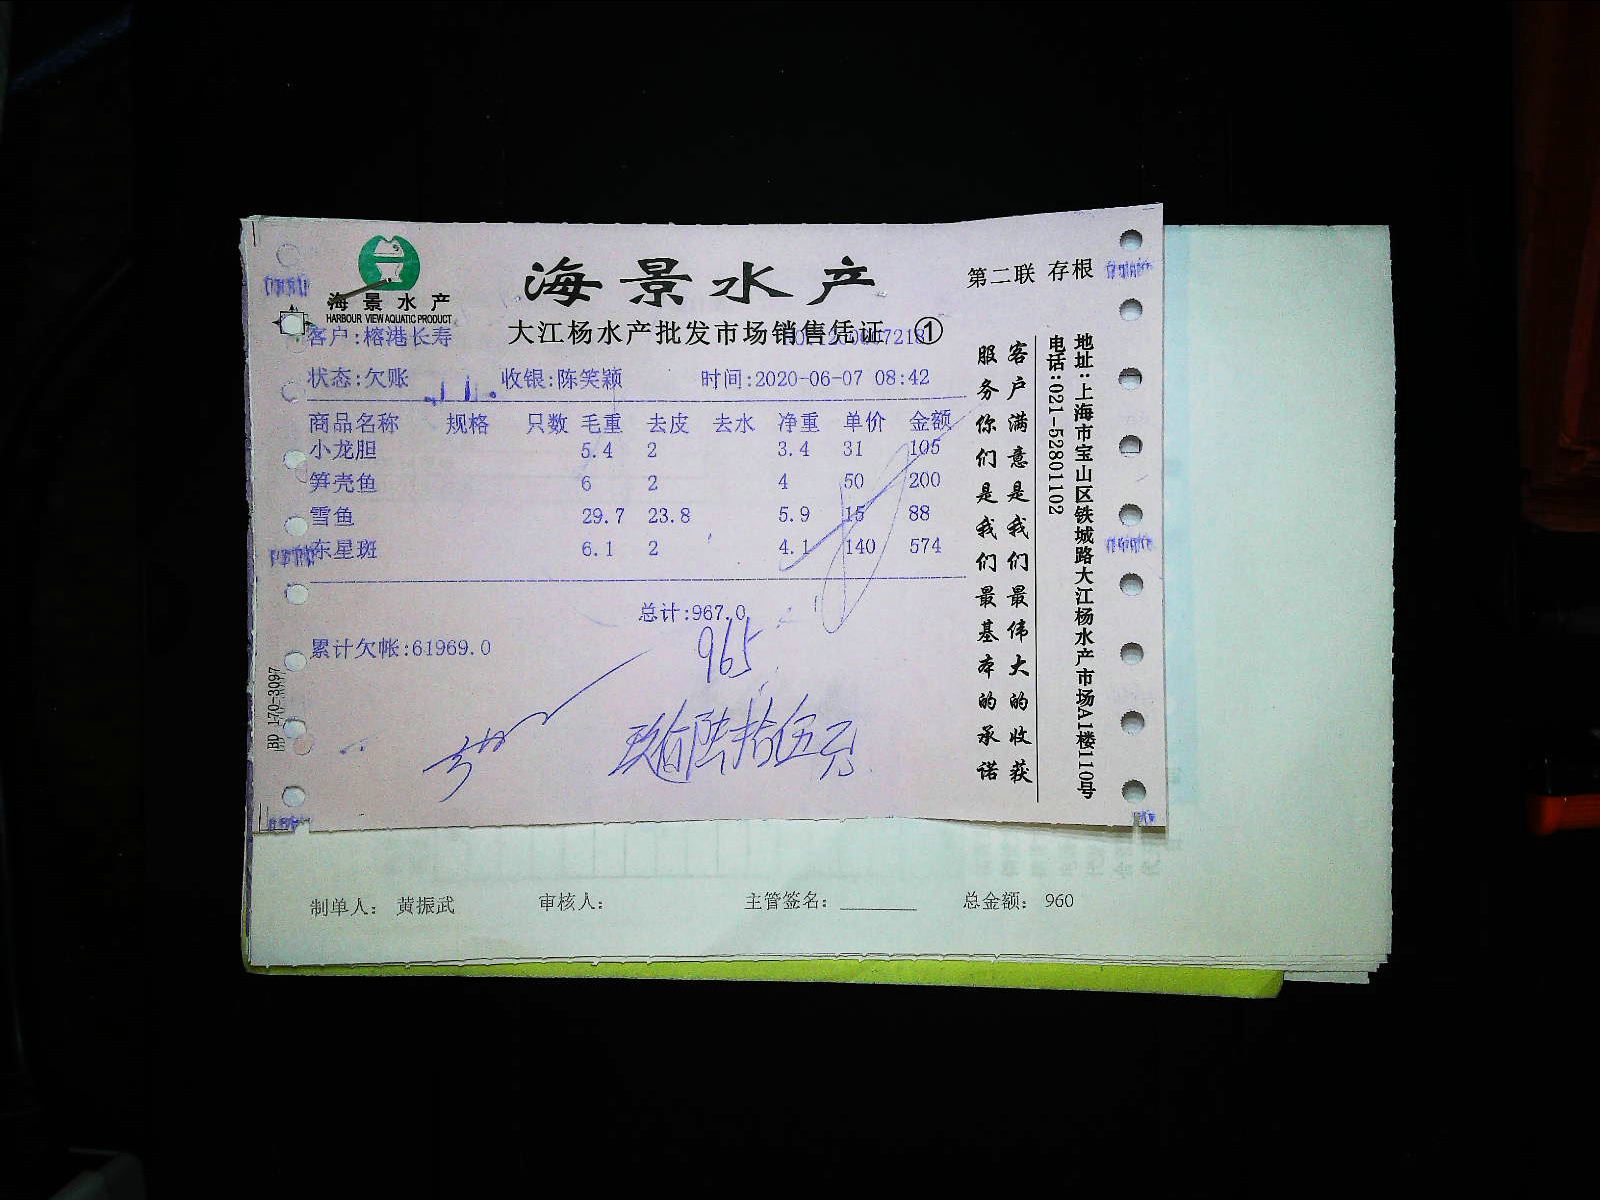 海景水产
HARBOUR VIEW AQUATIC PRODUCT
海景水产
第二联 存根
大江杨水产批发市场销售凭证 ①
客户:榕港长寿
状态:欠账 收银:陈笑颖 时间:2020-06-07 08:42
商品名称 规格 只数 毛重 去皮 去水 净重 单价 金额
小龙胆 5.4 2 3.4 31 105
笋壳鱼 6 2 4 50 200
雪鱼 29.7 23.8 5.9 15 88
东星斑 6.1 2 4.1 140 574
总计:967.0
累计欠帐:61969.0
965
玖佰陆拾伍元
客户满意是我们最伟大的收获
服务你们是我们最基本的承诺
地址:上海市宝山区铁城路大江杨水产市场A1楼110号
电话:021-52801102
BD 170-3097
制单人: 黄振武 审核人: 主管签名: 总金额: 960